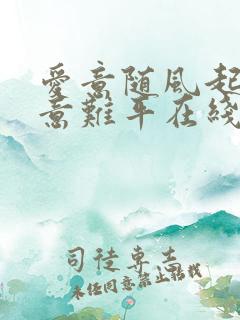 愛意随風起
意難平在綫
司徒專
未经同意禁止转载